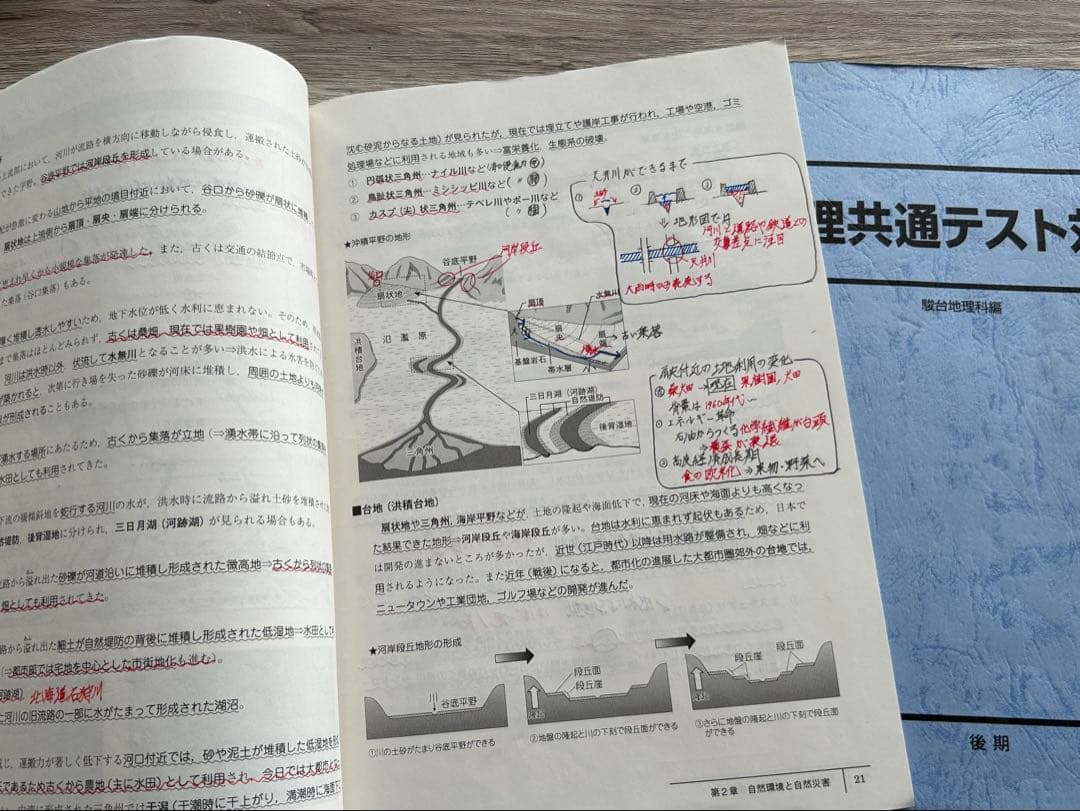 上流部において，河川が流路を横方向に移動しながら侵食し，運搬された土砂が
できた平野。谷底平野では河岸段丘を形成している場合がある。
に変わる山地から平地の境目付近において，谷口から砂礫が扇状に堆積
扇状地は上流側から扇頂・扇央・扇端に分けられる。
また，古くは交通の結節点で，
集落（谷口集落）もある。
堆積し透水しやすいため，地下水位が低く水利に恵まれない。そのため，
集落はほとんどみられず，古くは桑畑，現在では果樹園や畑として利用
河川は洪水時以外，伏流して水無川となることが多い⇒洪水による水害を
が築かれると，次第に行き場を失った砂礫が河床に堆積し，周囲の土地よりも
が形成されることもある。
湧水する場所にあたるため，古くから集落が立地（⇒湧水帯に沿って列状の
水田としても利用されてきた。
下流の緩傾斜地を蛇行する河川の水が，洪水時に流路から溢れ土砂を堆積
後背湿地に分けられ，三日月湖（河跡湖）が見られる場合もある。
流路から溢れ出た砂礫が河道沿いに堆積し形成された微高地⇒古くから列状の
畑としても利用されてきた。
路から溢れ出た細土が自然堤防の背後に堆積し形成された低湿地⇒水田として
（⇒都市部では宅地を中心とした市街地化も進む）。
北海道石狩川
河川の旧流路の一部に水がたまって形成された湖沼。
運搬力が著しく低下する河口付近では，砂や泥土が堆積した低湿地を形
であるため古くから農地（主に水田）として利用され，今日では大都市と
三角州では干潟（干潮時に干上がり，満潮時に海面下
沈む砂泥からなる土地）が見られたが，現在では埋立てや護岸工事が行われ，工場や空港，ゴミ
処理場などに利用される地域も多い⇒富栄養化，生態系の破壊。
① 円弧状三角州…ナイル川など
② 鳥趾状三角州…ミシシッピ川など
③ カスプ（尖）状三角州…テベレ川やポー川など
天井川ができるまで
① ② ③
⇓地形図では
河川と道路や鉄道との
交差点に注目
天井川
★沖積平野の地形
谷底平野
河岸段丘
扇状地
氾濫原
洪積台地
三角州
扇頂
水無川
扇央
扇端
古い集落
基盤岩石
帯水層
三日月湖（河跡湖）
自然堤防
後背湿地
扇状地付近の土地利用の変化
桑畑→現在 果樹園，水田
背景は1960年代～
① エネルギー革命
石油からつくる化学繊維が台頭
⇒養蚕が衰退
② 高度経済成長期
食の欧米化⇒果物・野菜へ
■台地（洪積台地）
扇状地や三角州，海岸平野などが，土地の隆起や海面低下で，現在の河床や海面よりも高くなっ
た結果できた地形⇒河岸段丘や海岸段丘が多い。台地は水利に恵まれず起伏もあるため，日本で
は開発の進まないところが多かったが，近世（江戸時代）以降は用水路が整備され，畑などに利
用されるようになった。また近年（戦後）になると，都市化の進展した大都市圏郊外の台地では，
ニュータウンや工業団地，ゴルフ場などの開発が進んだ。
★河岸段丘地形の形成
川
谷底平野
段丘面
段丘崖
隆起
段丘崖
段丘面
隆起
①川の土砂がたまり谷底平野ができる
②地盤の隆起と川の下刻で段丘面ができる
③さらに地盤の隆起と川の下刻で段丘面
ができる
第2章 自然環境と自然災害
21
理共通テスト対
駿台地理科編
後期